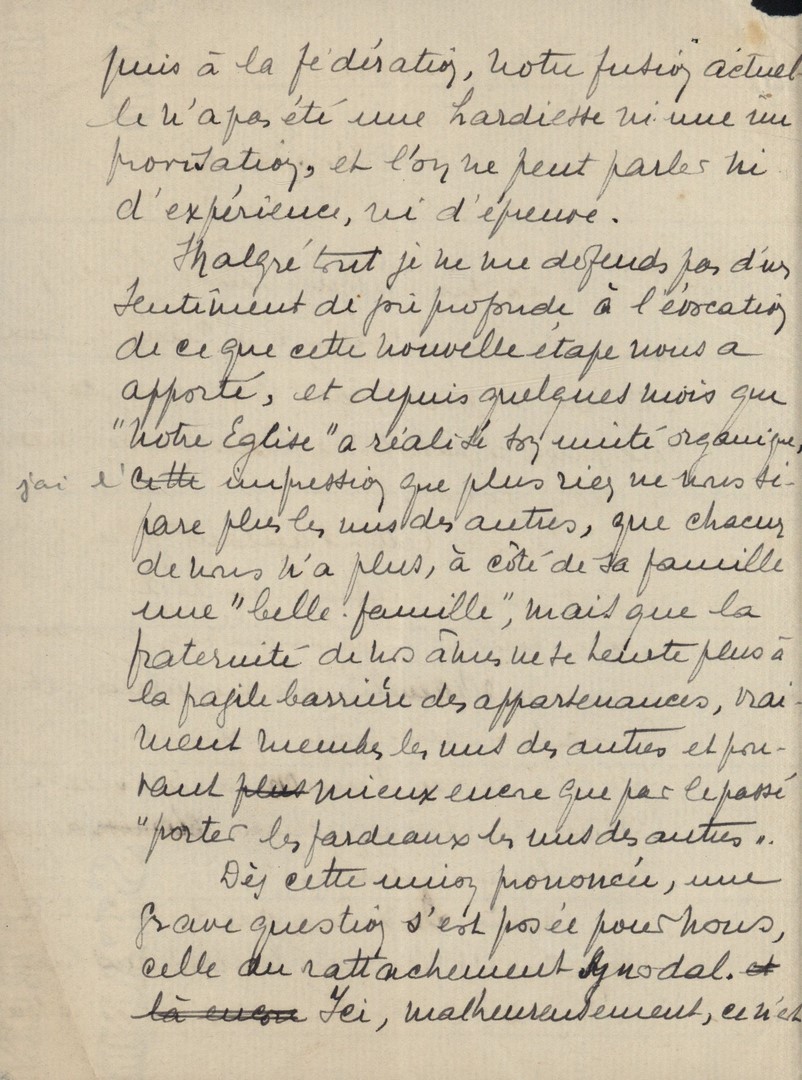 puis à la fédération, notre fusion actuel-
le n'a pas été une hardiesse ni une im
provisation, et l'on ne peut parler ni
d'expérience, ni d'épreuve.
Malgré tout je ne me défends pas d'un
sentiment de joie profonde à l'évocation
de ce que cette nouvelle étape nous a
apporté, et depuis quelques mois que
"notre Eglise" a réalisé son unité organique,
j'ai l' cette impression que plus rien ne nous sé-
pare plus les uns des autres, que chacun
de nous n'a plus, à côté de sa famille
une "belle-famille", mais que la
fraternité de nos âmes ne se heurte plus à
la fragile barrière des appartenances, vrai-
ment membres les uns des autres et pou-
vant plus mieux encore que par le passé
"porter les fardeaux les uns des autres".
Dès cette union prononcée, une
grave question s'est posée pour nous,
celle du rattachement synodal. et
là encore Ici, malheureusement, ce n'est